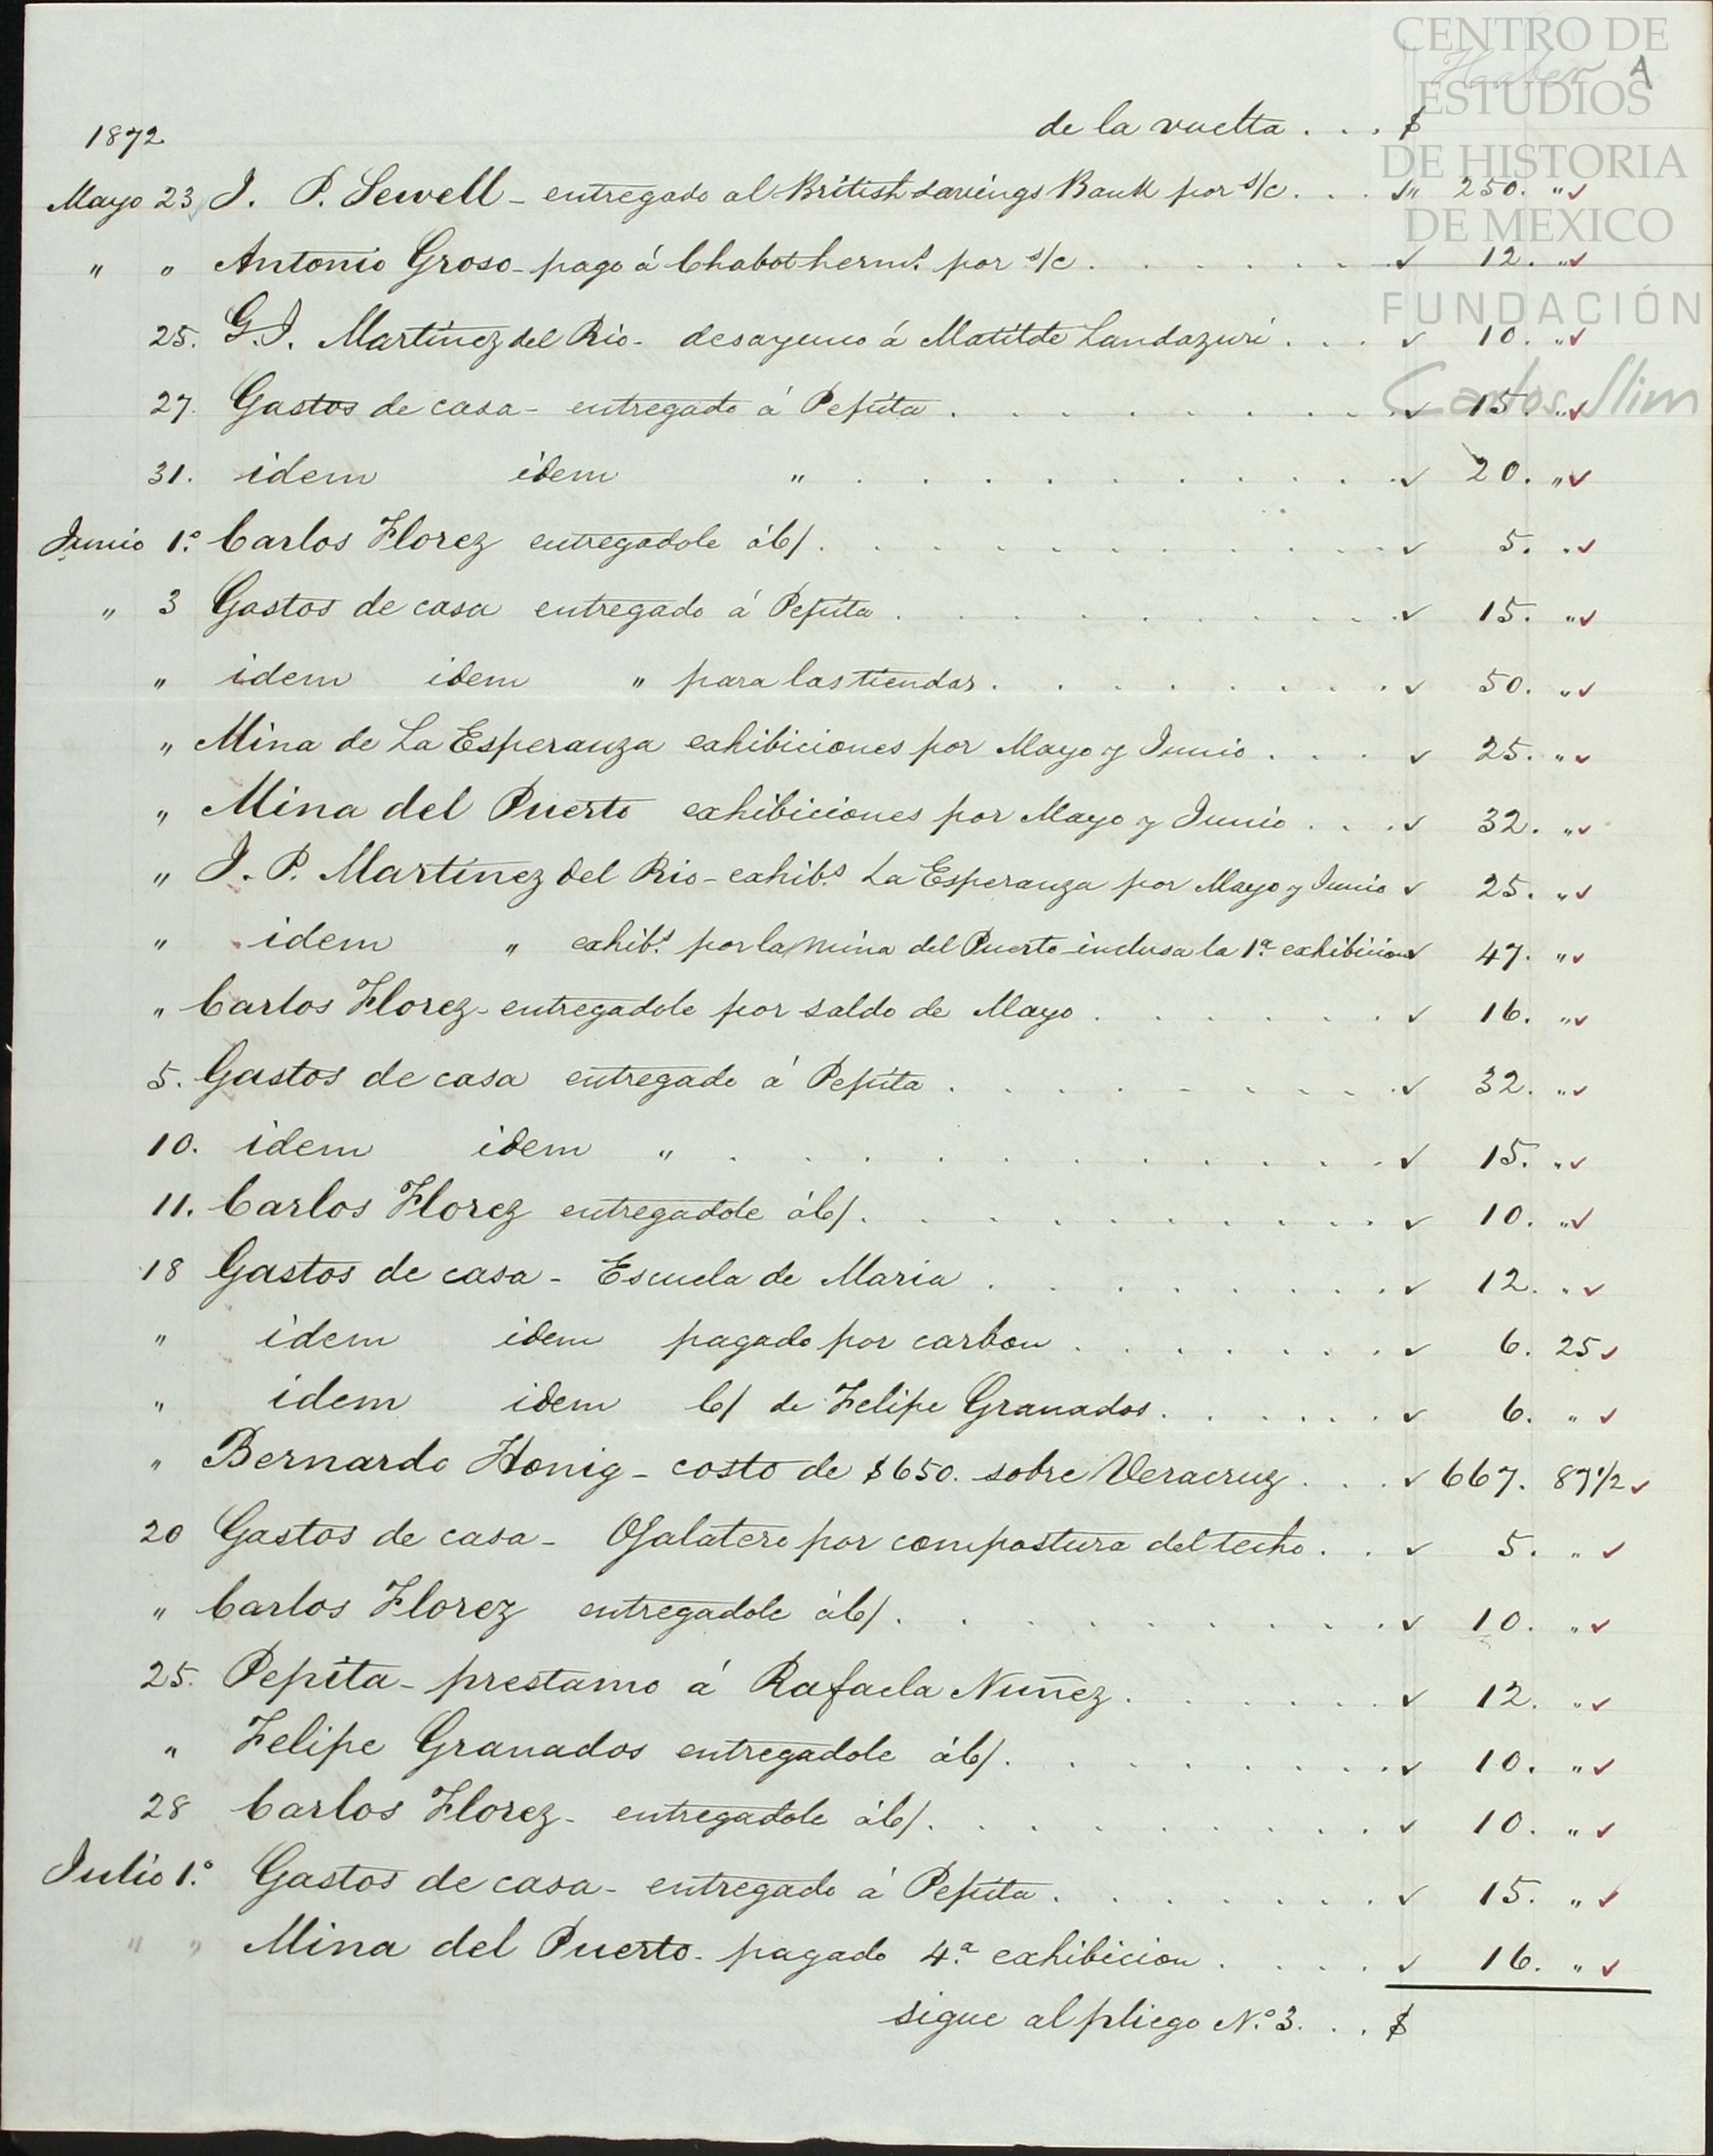 CENTRO DE
Haber A
ESTUDIOS
de la vuelta . . . $
1872
DE HISTORIA
Mayo 23 J. P. Sewell - entregado al British Savings Bank por s/c . . . " 250. "
DE MEXICO
" " Antonio Groso - pago á Chabot herms. por s/c . . . 12. "
FUNDACIÓN
25. G. I. Martinez del Rio - desayuno á Matilde Landazuri . . . 10. "
Carlos Slim
27. Gastos de casa - entregado á Pepita . . . 15. "
31. idem idem " . . . 20. "
Junio 1º Carlos Florez entregadole á c/. . . . 5. "
" 3 Gastos de casa entregado á Pepita . . . 15. "
" idem idem " para las tiendas . . . 50. "
" Mina de La Esperanza exhibiciones por Mayo y Junio . . . 25. "
" Mina del Puerto exhibiciones por Mayo y Junio . . . 32. "
" J. P. Martinez del Rio - exhibs. La Esperanza por Mayo y Junio 25. "
" idem " exhibs. por la mina del Puerto inclusa la 1ª exhibicion 47. "
" Carlos Florez - entregadole por saldo de Mayo . . . 16. "
5. Gastos de casa entregado á Pepita . . . 32. "
10. idem idem " . . . 15. "
11. Carlos Florez entregadole á c/. . . . 10. "
18 Gastos de casa - Escuela de Maria . . . 12. "
" idem idem pagado por carbon . . . 6. 25
" idem idem c/ de Felipe Granados . . . 6. "
" Bernardo Honig - costo de $650. sobre Veracruz . . . 667. 87 1/2
20 Gastos de casa - Ojalatero por compostura del techo . . . 5. "
" Carlos Florez entregadole á c/. . . . 10. "
25. Pepita - prestamo á Rafaela Nuñez . . . 12. "
" Felipe Granados entregadole á c/. . . . 10. "
28 Carlos Florez - entregadole á c/. . . . 10. "
Julio 1º Gastos de casa - entregado á Pepita . . . 15. "
" " Mina del Puerto - pagado 4ª exhibicion . . . 16. "
sigue al pliego Nº 3. . . $